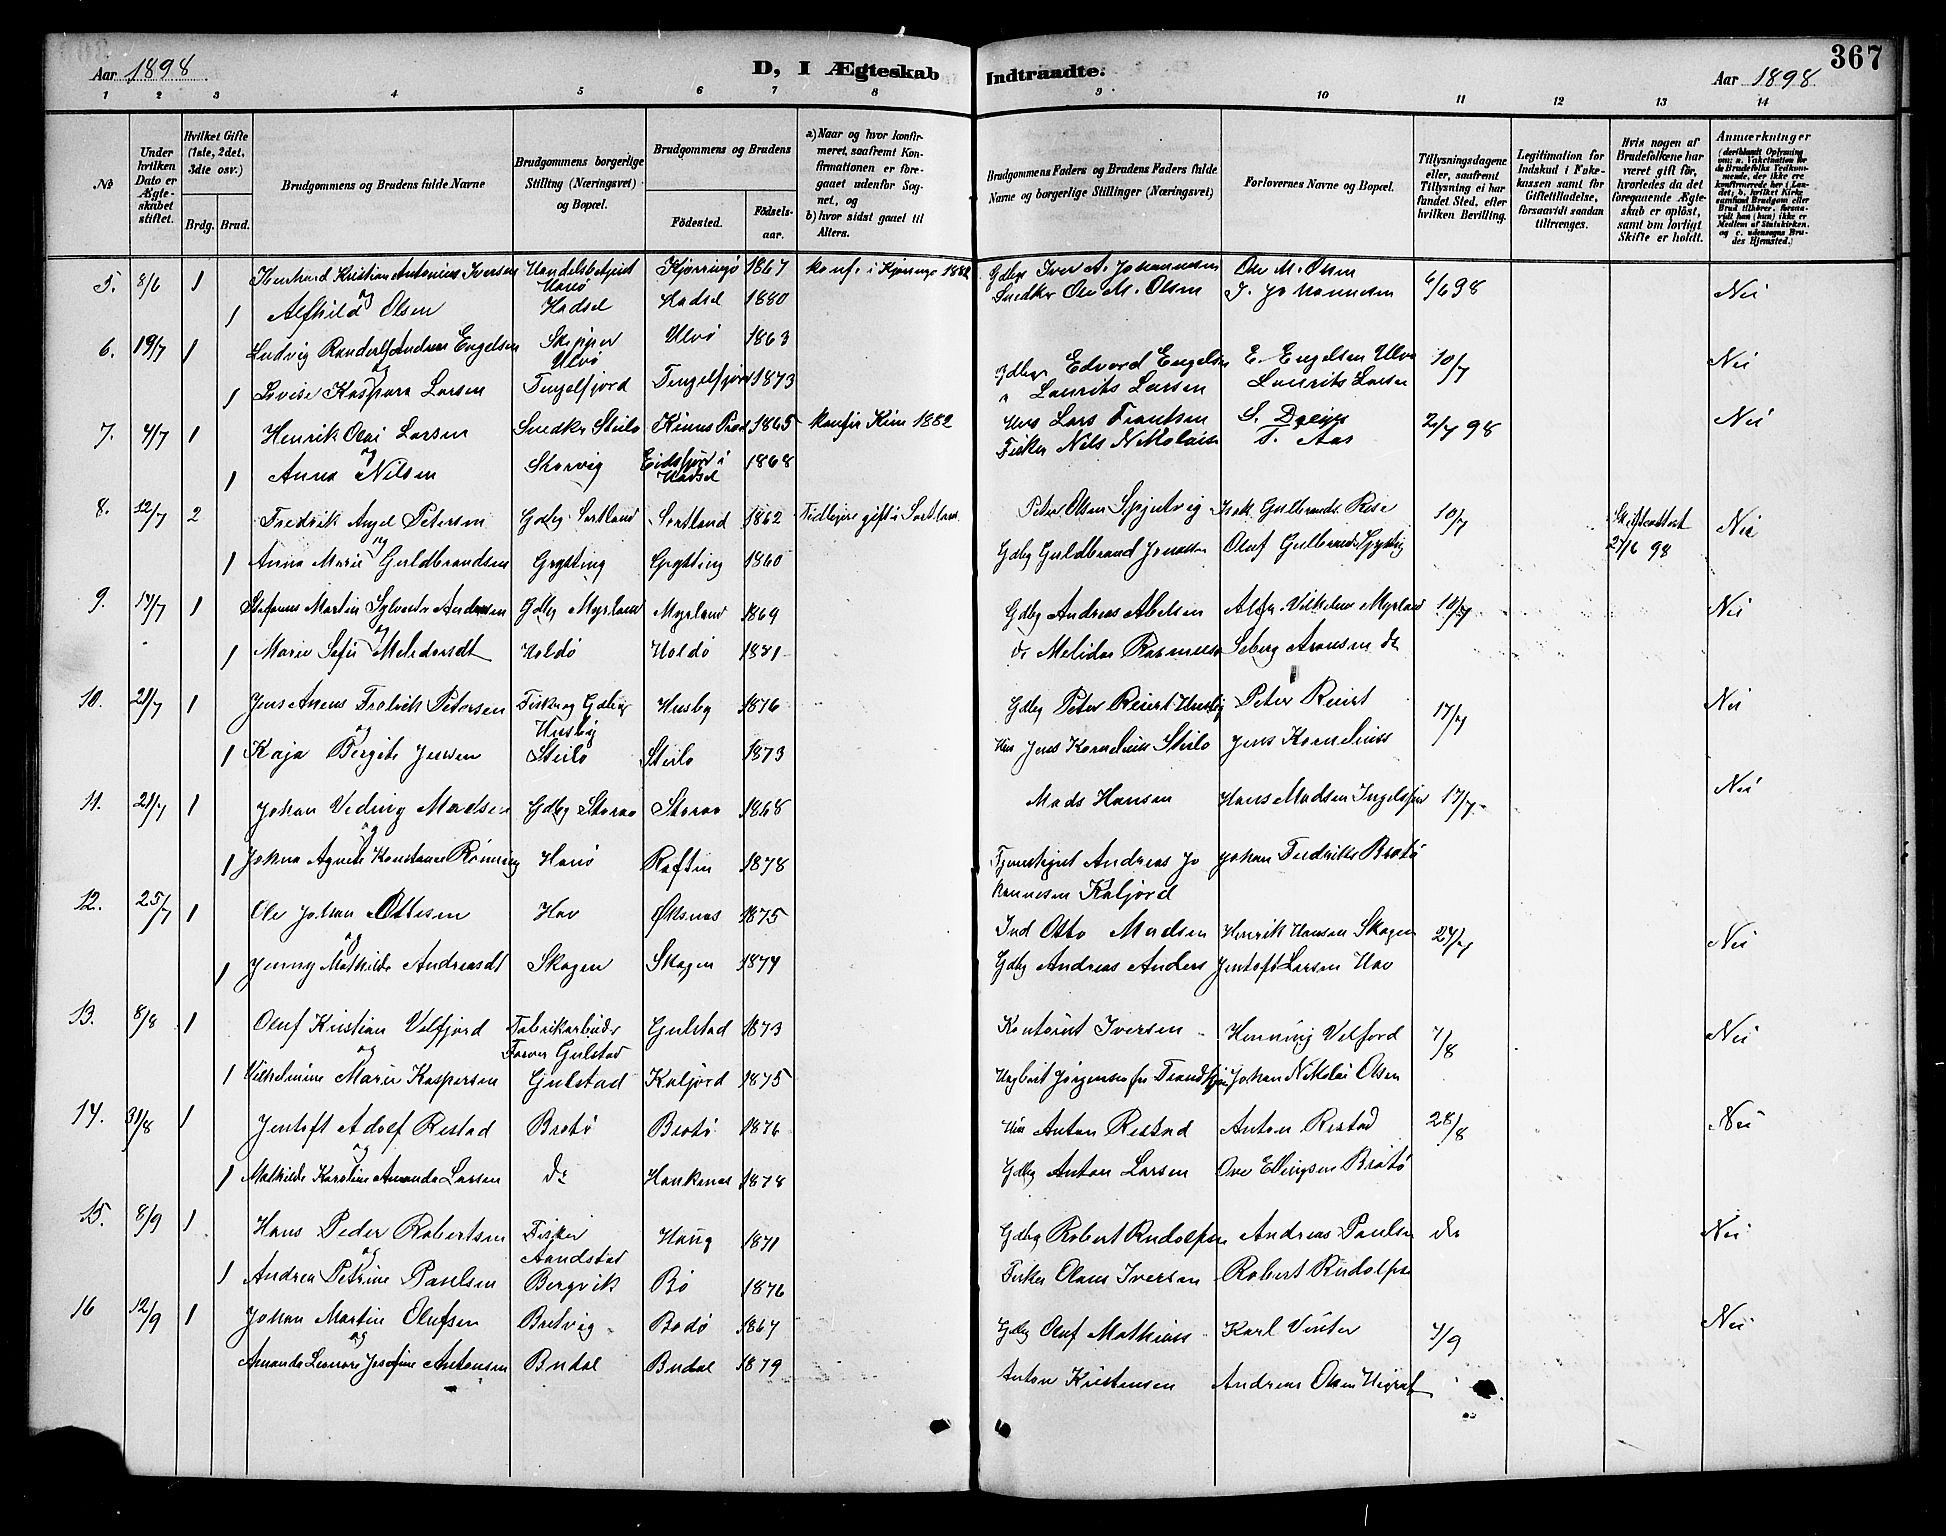 367
Aar 1898
D, I Ægteskab Indtraadte.
Aar 1898
1 2 3 4 5 6 7 8 9 10 11 12 13 14
No
Under hvilken Dato er Ægteskabet stiftet.
Hvilket Gifte (1ste, 2det, 3die osv.)
Brdg. Brud.
Brudgommens og Brudens fulde Navne
Brudgommens borgerlige Stilling (Næringsvei) og Bopæl.
Brudgommens og Brudens
Fødested. Fødselsaar.
a) Naar og hvor konfirmeret, saafremt Konfirmationen er foregaaet udenfor Sognet, og
b) hvor sidst gaaet til Alters.
Brudgommens Faders og Brudens Faders fulde Navne og borgerlige Stillinger (Næringsvei)
Forlovernes Navne og Bopæl.
Tillysningsdagene eller, saafremt Tillysning ei har fundet Sted, efter hvilken Bevilling.
Legitimation for Indskud i Enkekassen samt for Giftetilladelse, forsaavidt saadan tiltrænges.
Hvis nogen af Brudefolkene har været gift før, hvorledes da det foregaaende Ægteskab er opløst, samt om lovligt Skifte er holdt.
Anmærkninger
5. 8/6 1 Kristian Antonius Iversen Handelsbetjent Kjerringø 1867 konf. i Kjerringø 1882 Gdbgr Iver A. Johannesen Ole M. Olsen 6/6 98 Nei
og Hanø
1 Alfhild Olsen Hadsel Hadsel 1880 Snedker Ole M. Olsen I. Johannesen
6. 19/7 1 Ludvig Andreas Engelsen Skipper Ulvø Ulvø 1863 Gdbgr Edvard Engelsen E. Engelsen Ulvø 10/7 Nei
og
1 Lovise Kaspara Larsen Tengelfjord Tengelfjord 1873 Laurits Larsen Laurits Larsen
7. 4/7 1 Henrik Olai Larsen Snedker Steilo 1865 konfir Kinn 1882 Hus Lars Frantsen 2/7 98 Nei
og
1 Anna Nilsen Skorvig Eidsfjord i Hadsel 1868 Fisker Nils Nikolaisen I. Aas
8. 12/7 2 Fredrik Angel Petersen Gdbg. Sortland Sortland 1862 Tidligere gift i Sortland Peter Olsen Gulbrands Rise 10/7 Skifteattest 27/6 98 Nei
og
1 Anna Marie Guldbrandsen Grytting Grytting 1860 Gdbg Guldbrand Oluf
9. 17/7 1 Stefanus Martin Sylvester Andersen Gdbg Myrland Myrland 1869 Gdbg Andreas Abelsen Vilhelm Myrland 10/7 Nei
og
1 Marie Sofie Melidorsdt Holdø Holdø 1871 do Melidor Rasmussen Seberg Aronsen do
10. 21/7 1 Jens Fredrik Petersen Fisker og Gdbgr Husby Husby 1876 Gdbg Peter Reiert Husby Peter Reiert 17/7 Nei
og
1 Kaja Bergite Jensen Steilo Steilo 1873 Hus Jens Kornelius Steilo Jens Kornelius
11. 21/7 1 Johan Vedring Madsen Gdbg Storaa Storaa 1868 Mads Hansen Hans Madsen 17/7 Nei
og
1 Johna Agnete Konstance Rønning Hanø Raftin 1878 Tjenestegut Andreas Johannesen Kaljord Johan Fredriks Brotø
12. 25/7 1 Ole Johan Ottesen Hov Øksnes 1875 Ind Otto Madsen Henrik Hansen Skagen 24/7 Nei
og
1 Jenny Mathilde Andreasdt Skagen Skagen 1874 Gdbg Andreas Anders Jentoft Larsen Hov
13. 8/8 1 Oluf Kristian Velfjord Fabrikarbeider Gulstad 1873 Kontorist Iversen Henning Velfjord 7/8 Nei
og Gulstad
1 Vilhelmine Marie Kaspersen Gulstad Kaljord 1875 Jørgensen Johan Nikolai Olsen
14. 31/8 1 Jentoft Adolf Restad Brotø Brotø 1876 Hus Anton Restad Anton Restad 28/8 Nei
og
1 Mathilde Karoline Amanda Larsen do Hanksnes 1878 Gdbg Anton Larsen Ove Ellingsen Brotø
15. 8/9 1 Hans Peder Robertsen Fisker Haug 1871 Gdbg Robert Rudolfsen Andreas Paulsen do Nei
og Aandstad
1 Andrea Petrine Paulsen Bergvik Bø 1876 Fisker Olaus Iversen Robert Rudolfsen
16 12/9 1 Johan Martin Olufsen Bretvig Bodø 1867 Gdbg Oluf Mathias Karl Vinter 4/9 Nei
og
Amanda Leonore Josefine Antonsen Budal Budal 1879 Anton Kristensen Andreas Olsen